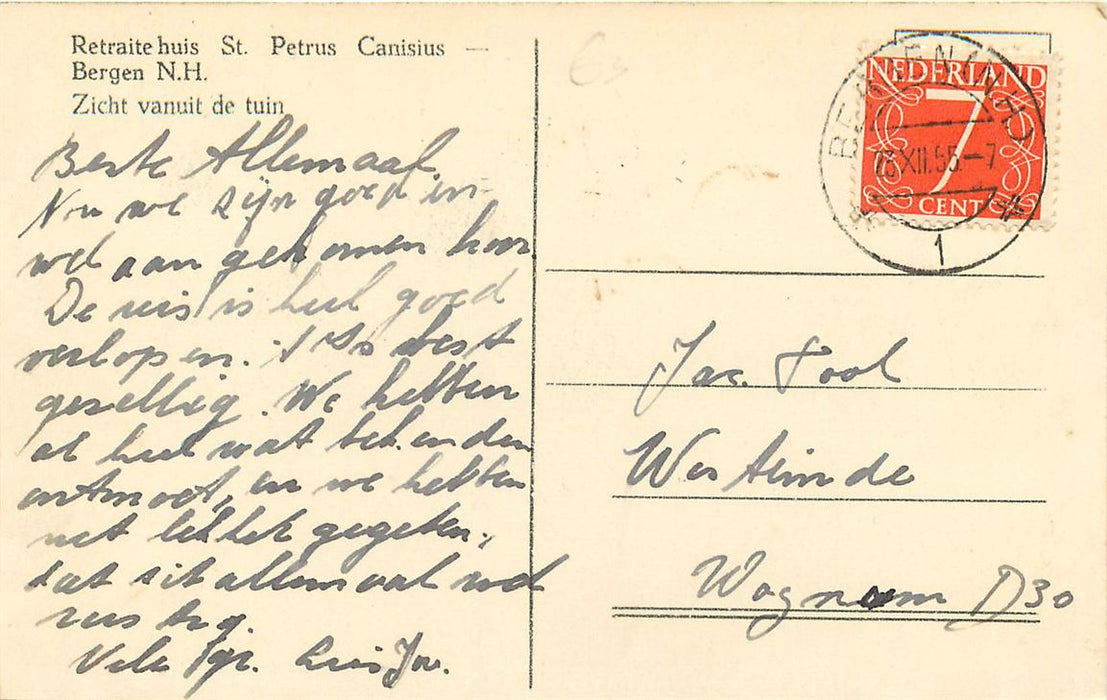 Retraitehuis St. Petrus Canisius —
Bergen N.H.
Zicht vanuit de tuin
Beste Allemaal.
Nu we zijn goed en
wel aangekomen hoor.
De reis is heel goed
verlopen. 't Is best
gezellig. We hebben
al heel wat bekenden
ontmoet, en we hebben
net lekker gegeten,
dat zit allemaal wel
rustig.
Vele gr.
NEDERLAND
7
CENT
BERGEN (NH)
XII.55.-7
1
Jac. Tool
Westeinde
Wognum D30